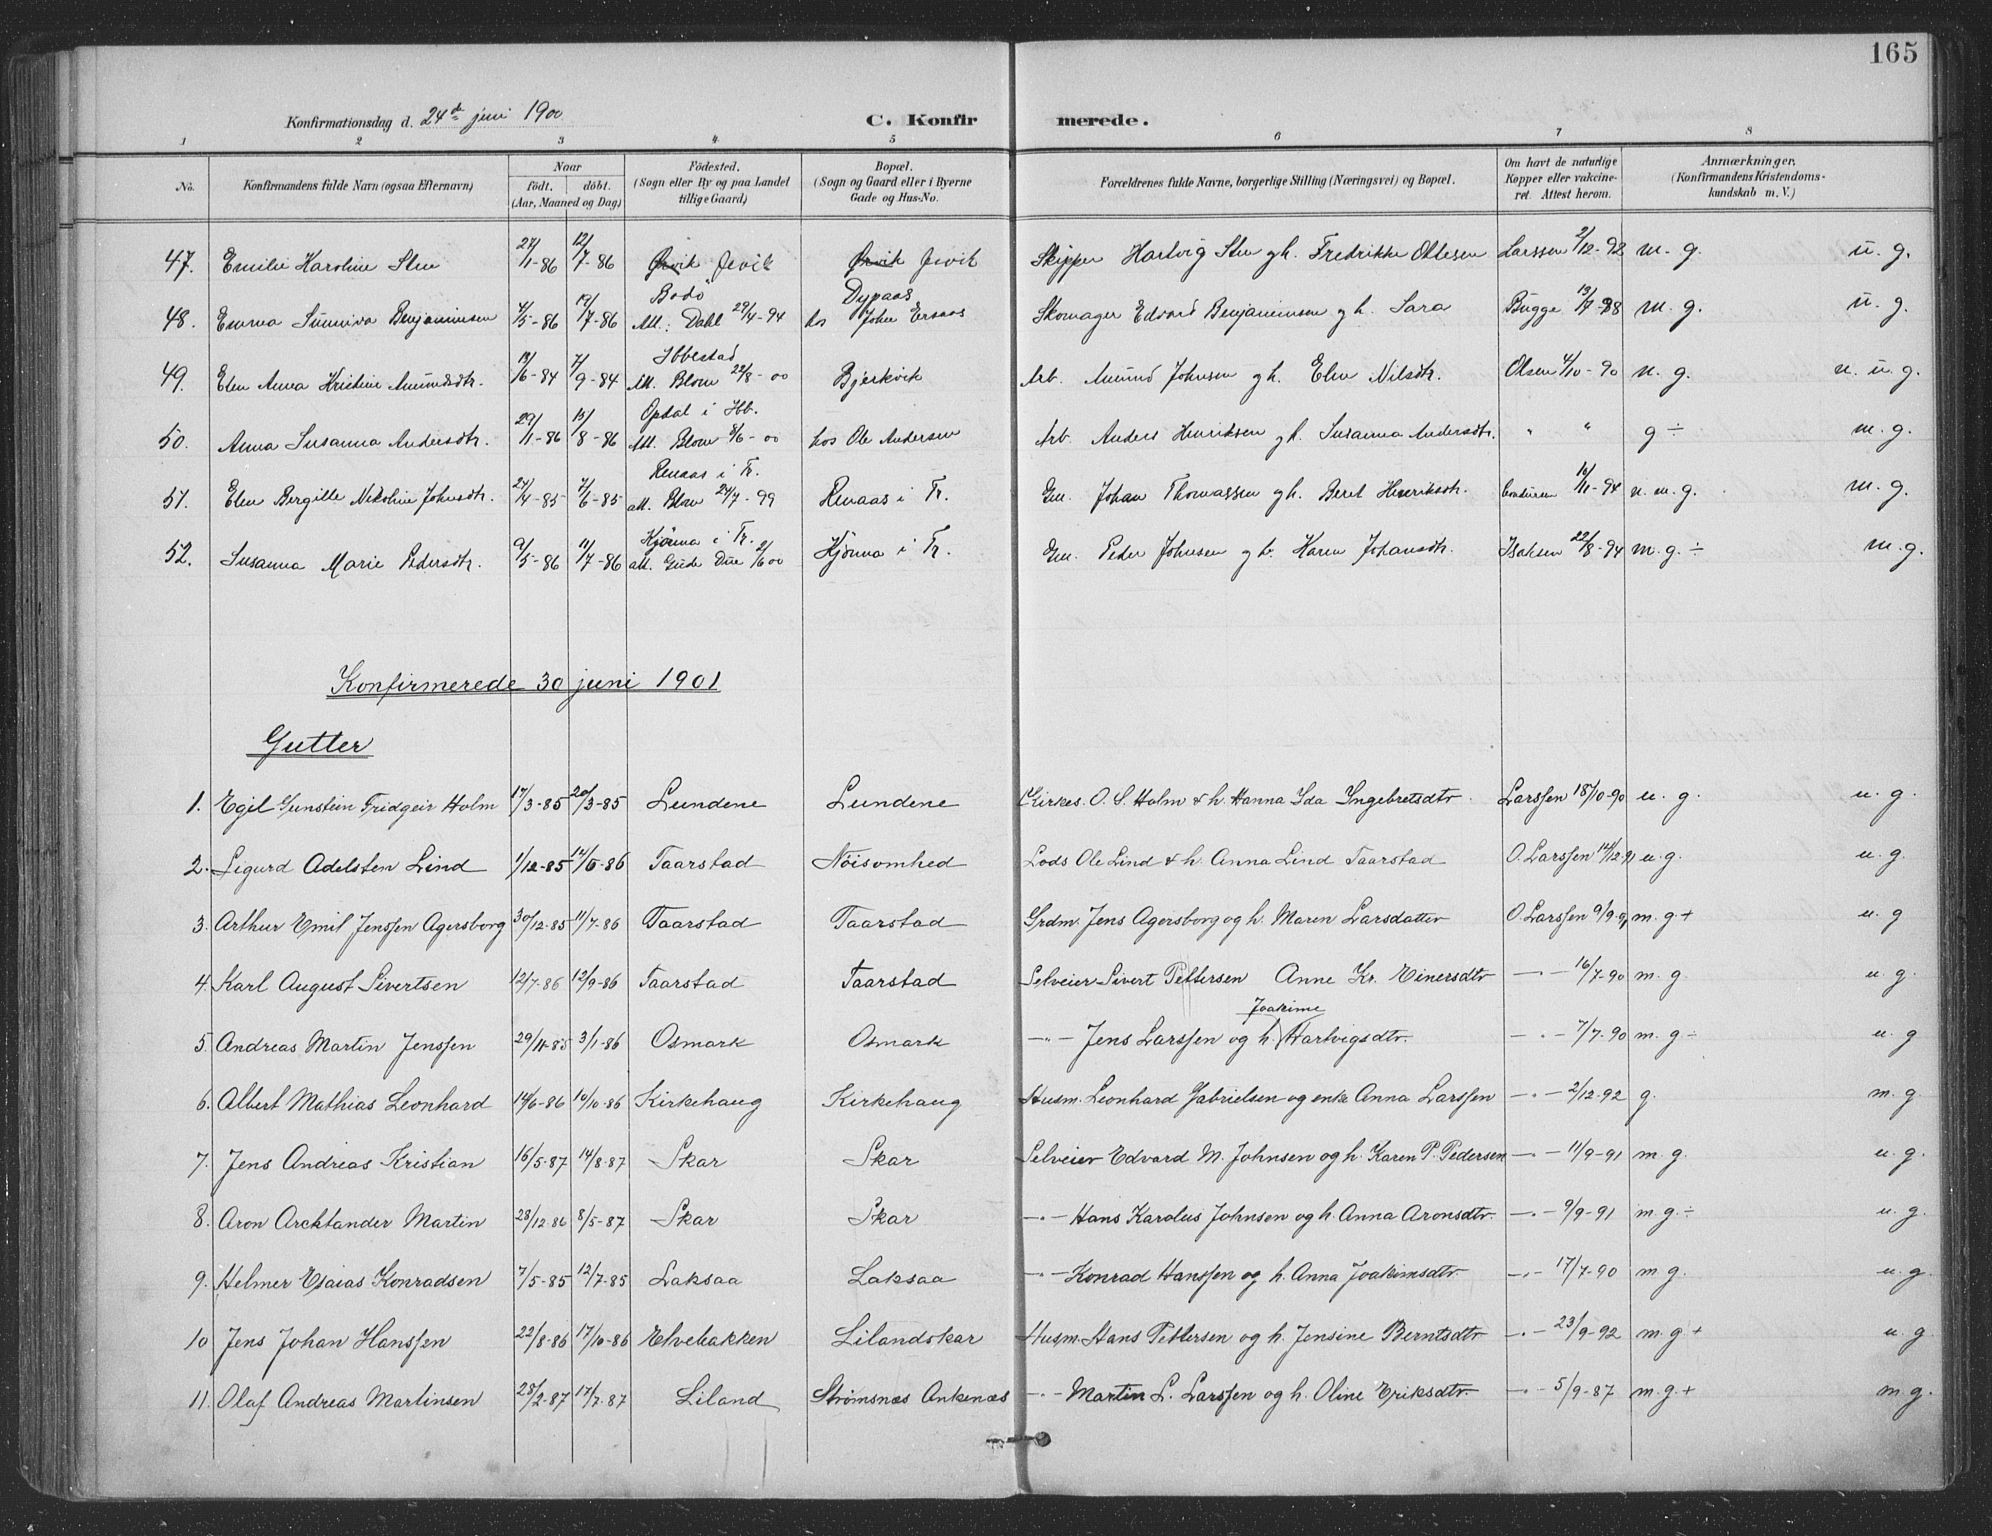 165
Konfirmationsdag d. 24de juni 1900 C. Konfirmerede.
1 2 3 4 5 6 7 8
No. Konfirmandens fulde Navn (ogsaa Efternavn) Naar födt. döbt. (Aar, Maaned og Dag) Födested. (Sogn eller By og paa Landet tillige Gaard) Bopæl. (Sogn og Gaard eller i Byerne Gade og Hus-No. Forældrenes fulde Navne, borgerlige Stilling (Næringsvei) og Bopæl. Om havt de naturlige Kopper eller vakcineret. Attest herom. Anmærkninger. (Konfirmandens Kristendomskundskab m. V.)
47. Emilie Karoline Sten 27/1-86 12/7-86 Ørvik Jevik Ørvik Jevik Skipper Hartvig Sten g h. Fredrikke Ottesen Larssen 2/12-92 m. g. u. g.
48. Emma Sunniva Benjaminsen 4/5-86 19/7-86 Bodö Att: Dahl 29/4-94 Dypaas hos John Ersaas Skomager Edvard Benjaminsen g h. Sara Bugge m. g. u. g.
49. Elen Anna Kristine Amundsdtr. 19/6-84 7/9-84 Ibbestad Att. Blom 22/8-00 Bjerkvik Arb. Amund Johnsen g h. Elen Nilsdtr. Olsen 4/10-90 n. g. n. u. g.
50. Anna Susanna Andersdtr. 29/1-86 13/8-86 Opdal i Ibb. Att. Blom 8/6-00 hos Ole Andersen Arb. Anders Henriksen g h. Susanna Andersdtr. " " g ÷ m. g.
51. Elen Bergitte Nikoline Johnsdtr. 27/4-85 7/6-85 Renaas i Tr. att. Blom 24/7-99 Renaas i Tr. Gm. Johan Thomassen g h. Beret Henriksdtr. 10/11-94 n. m. g. m. g.
52. Susanna Marie Pedersdtr. 9/5-86 11/7-86 Kjönna i Tr. att. Gude Due 2/6 00 Kjönna i Tr. Gm. Peder Johnsen g h. Karen Johansdtr. Isaksen 22/8-94 m. g. ÷ m. g.
Konfirmerede 30 juni 1901
Gutter
1. Egil Gunstein Fridgeir Holm 17/3-85 20/3-85 Lundene Lundene Kirkes. O. S. Holm & h. Hanna Ida Ingebretsdtr. Larssen 18/10-90 u. g. u. g.
2. Sigurd Adelsten Lind 1/12-85 12/5-86 Taarstad Nöisomhed Lods Ole Lind & h. Anna Lind Taarstad O. Larssen 14/12-91 u. g. u. g.
3. Arthur Emil Jenssen Agersborg 30/12-85 11/7-86 Taarstad Taarstad Grdm. Jens Agersborg og h. Maren Larsdatter O. Larssen 9/9-91 m. g + u. g
4. Karl August Sivertsen 12/7-86 12/9-86 Taarstad Taarstad Selveier Sivert Pettersen Anne Kr. Einersdtr — " — 16/7-90 m. g u. g
5. Andreas Martin Jenssen 29/11-85 3/1-86 Osmark Osmark — " — Jens Larssen og h. Joakime Hartvigsdtr. — " — 7/7-90 m. g ÷ u. g
6. Albert Mathias Leonhard 14/6-86 10/10-86 Kirkehaug Kirkehaug Husm. Leonhard Gabrielsen og enke Anna Larssen — " — 2/12-92 g. m. g.
7. Jens Andreas Kristian 16/5-87 14/8-87 Skar Skar Selveier Edvard M. Johnsen og h. Karen P. Pedersen — " — 11/9-91 m. g. u. g.
8. Aron Archtander Martin 28/12-86 8/5-87 Skar Skar — " — Hans Karolus Johnsen og h. Anna Aronsdtr. — " — 9/9-91 m. g. ÷ u. g.
9. Helmer Esaias Konradsen 7/5-85 12/7-85 Laksaa Laksaa — " — Konrad Hanssen og h. Anna Joakimsdtr. — " — 17/7-90 m. g. u. g
10 Jens Johan Hanssen 22/8-86 17/10-86 Elvebakken Lilandskar Husm. Hans Pettersen og h. Jensine Berntsdtr — " — 23/9-92 m. g + u. g
11. Olaf Andreas Martinsen 28/2-87 17/7-87 Liland Strømsnæs Ankenæs — " — Martin L. Larssen og h. Oline Eriksdtr. — " — 5/9-87 m. g + m. g.